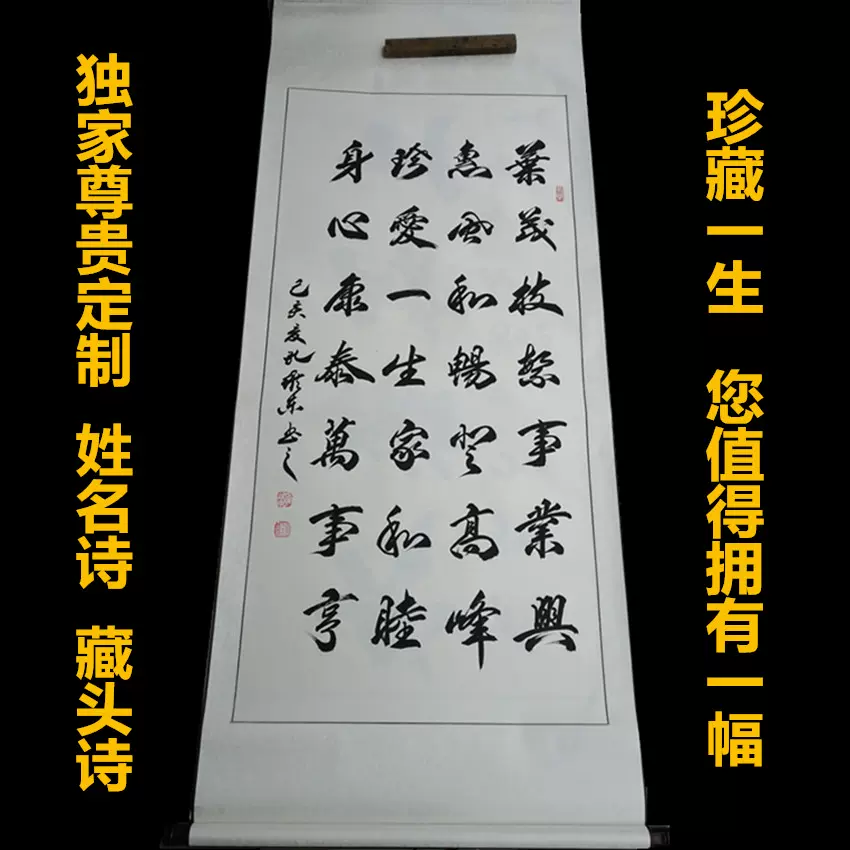 独家尊贵定制 姓名诗 藏头诗
珍藏一生 您值得拥有一幅
葉茂枝繁事業興
惠風和暢登高峰
珍愛一生家和睦
身心康泰萬事亨
己亥夏孔东书之